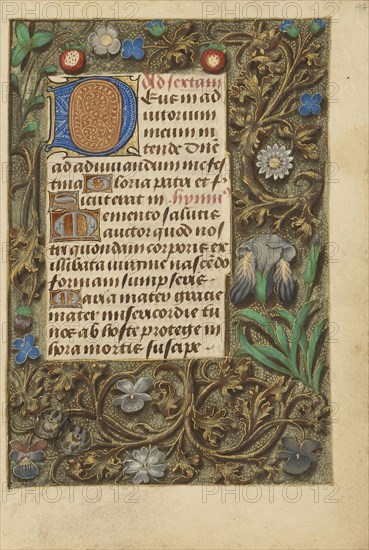 Ad sextam
Deus in ad
iutorium
meum in
tende Dne
ad adiuuandum me fes
tina Gloria patri et f
Sicut erat in hymnu
Memento salutis
auctor quod nos
tri quondam corporis ex
illibata uirgine nascēdo
formam sumpseris
Maria mater gracie
mater misericordie tu
nos ab hoste protege in
hora mortis suscipe